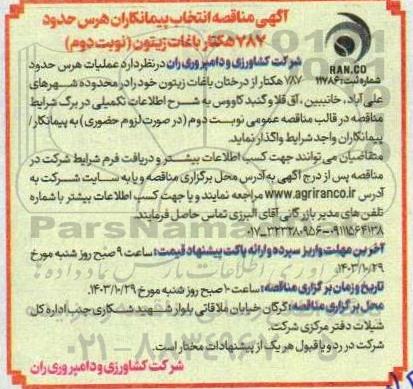 آگهی مناقصه انتخاب پیمانکاران هرس حدود
۷۸۷ هکتار باغات زیتون (نوبت دوم)
RAN.CO
شماره ثبت: ۱۱۷۸۶
شرکت کشاورزی و دامپروری ران در نظر دارد عملیات هرس حدود
۷۸۷ هکتار از درختان باغات زیتون خود را در محدوده شهرهای
علی آباد، خانببین، آق قلا و گنبد کاووس به شرح اطلاعات تکمیلی در برگ شرایط
مناقصه در قالب مناقصه عمومی نوبت دوم (در صورت لزوم حضوری) به پیمانکار/
پیمانکاران واجد شرایط واگذار نماید.
متقاضیان می توانند جهت کسب اطلاعات بیشتر و دریافت فرم شرایط شرکت در
مناقصه پس از درج آگهی به آدرس محل برگزاری مناقصه و یا به سایت شرکت به
آدرس www.agriranco.ir مراجعه نمایند و یا جهت کسب اطلاعات بیشتر با شماره
تلفن های مدیر بازرگانی آقای البرزی تماس حاصل فرمایند.
۰۱۷-۳۲۳۲۸۰۹۵۶-۰۹۱۱۵۶۴۱۳۸
آخرین مهلت واریز سپرده و ارائه پاکت پیشنهاد قیمت: ساعت ۹ صبح روز شنبه مورخ
۱۴۰۳/۱۰/۲۹
تاریخ و زمان برگزاری مناقصه: ساعت ۱۰ صبح روز شنبه مورخ ۱۴۰۳/۱۰/۲۹.
محل برگزاری مناقصه: گرگان خیابان ملاقاتی بلوار شهید شکاری جنب اداره کل
شیلات دفتر مرکزی شرکت.
شرکت در رد و یا قبول هر یک از پیشنهادات مختار است.
شرکت کشاورزی و دامپروری ران